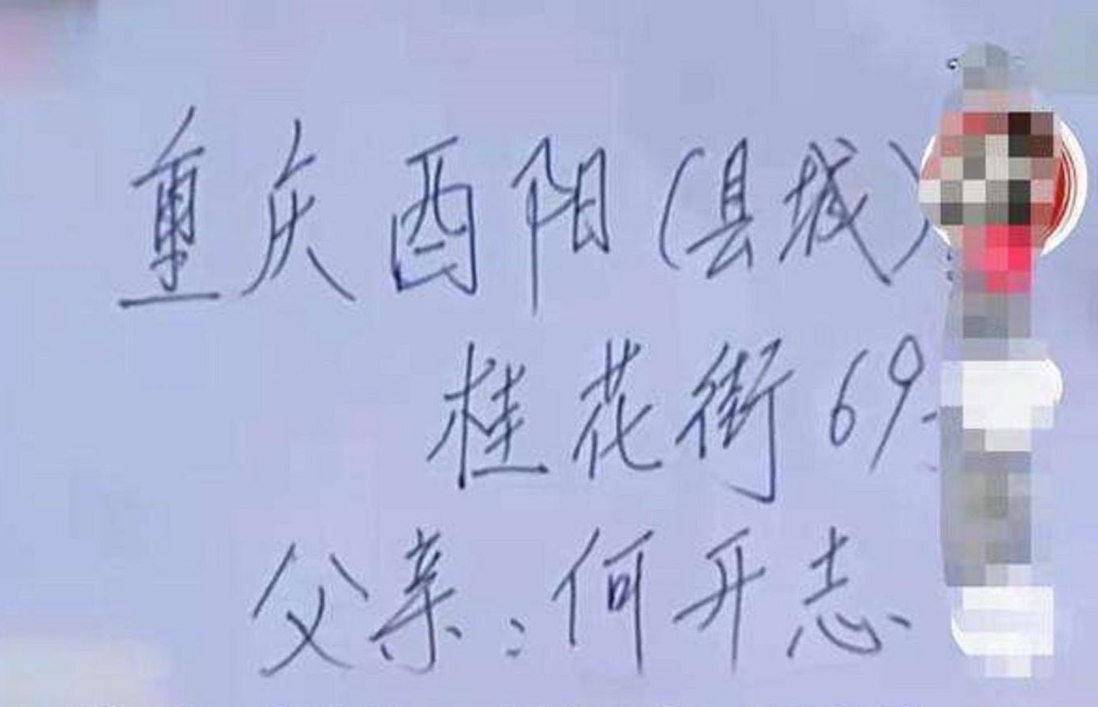 重庆酉阳(县城)
桂花街69-
父亲:何开志